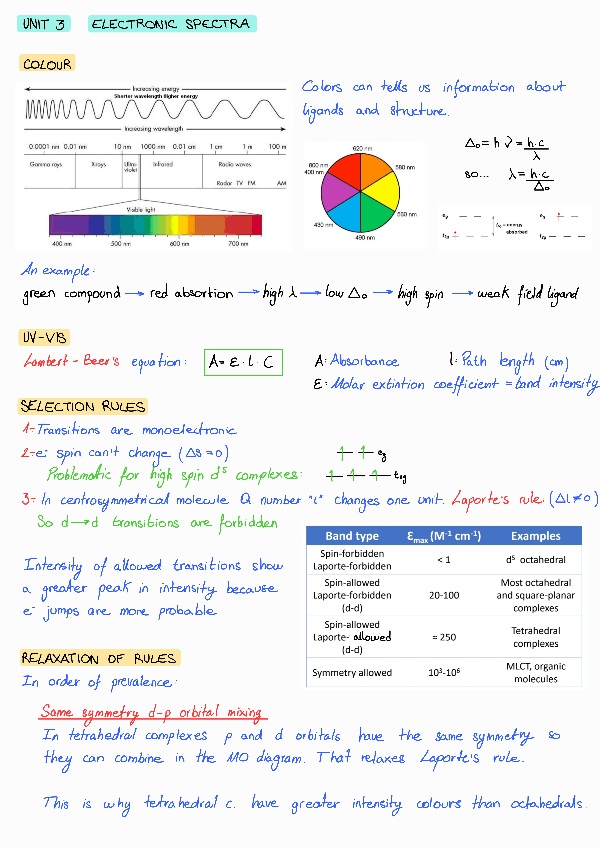 UNIT 3 ELECTRONIC SPECTRA
COLOUR
Increasing energy
Shorter wavelength Higher energy
Increasing wavelength
0.0001 nm 0.01 nm 10 nm 1000 nm 0.01 cm 1 cm 1 m 100 m
Gamma rays X-rays Ultra-violet Infrared Radio waves
Radar TV FM AM
Visible light
400 nm 500 nm 600 nm 700 nm
Colors can tells us information about
ligands and structure.
620 nm
800 nm
400 nm
580 nm
430 nm
560 nm
490 nm
Δo = h ν = h·c / λ
so... λ = h·c / Δo
eg
t2g
Δo = energy absorbed
eg
t2g
An example:
green compound → red absortion → high λ → low Δo → high spin → weak field ligand
UV-VIS
Lambert-Beer's equation: A = ε · l · C A: Absorbance l: Path length (cm)
ε: Molar extintion coefficient = band intensity
SELECTION RULES
1- Transitions are monoelectronic
2- e- spin can't change (ΔS = 0)
Problematic for high spin d5 complexes:
eg
t2g
3- In centrosymmetrical molecule Q number "l" changes one unit. Laporte's rule (Δl ≠ 0)
So d → d transitions are forbidden
Intensity of allowed transitions show
a greater peak in intensity because
e- jumps are more probable
Band type Ɛmax (M-1 cm-1) Examples
Spin-forbidden
Laporte-forbidden < 1 d5 octahedral
Spin-allowed
Laporte-forbidden
(d-d) 20-100 Most octahedral
and square-planar
complexes
Spin-allowed
Laporte- allowed
(d-d) ≈ 250 Tetrahedral
complexes
Symmetry allowed 10³-10⁶ MLCT, organic
molecules
RELAXATION OF RULES
In order of prevalence:
Same symmetry d-p orbital mixing
In tetrahedral complexes p and d orbitals have the same symmetry so
they can combine in the MO diagram. That relaxes Laporte's rule.
This is why tetrahedral c. have greater intensity colours than octahedrals.